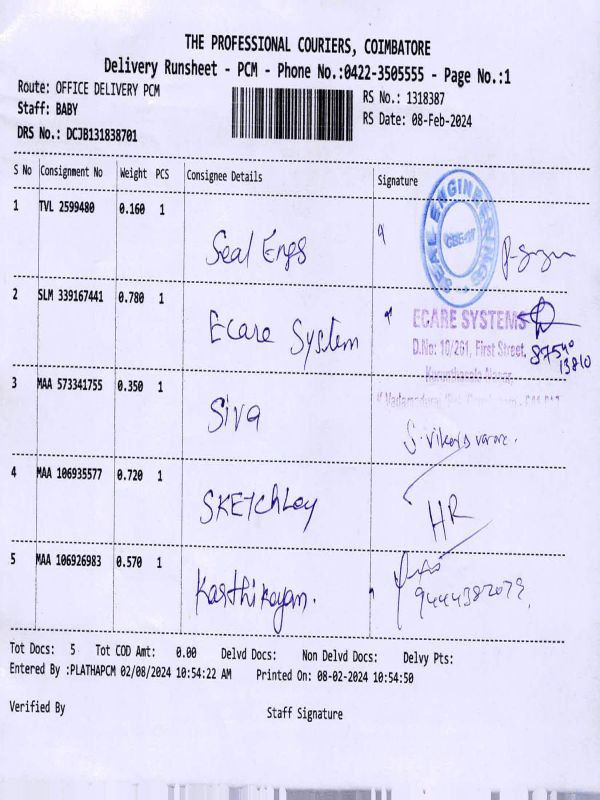 THE PROFESSIONAL COURIERS, COIMBATORE
Delivery Runsheet - PCM - Phone No.:0422-3505555 - Page No.:1
Route: OFFICE DELIVERY PCM
RS No.: 1318387
Staff: BABY
RS Date: 08-Feb-2024
DRS No.: DCJB131838701
S No Consignment No Weight PCS Consignee Details Signature
1 TVL 2599480 0.160 1 Seal Engs
SEAL ENGINEERINGS
2 SLM 339167441 0.780 1 Ecare System
ECARE SYSTEMS
D.No: 10/261, First Street,
87540
13810
3 MAA 573341755 0.350 1 Siva
4 MAA 106935577 0.720 1 SKETChLey
HR
5 MAA 106926983 0.570 1 Karthikayan.
9444382079
Tot Docs: 5 Tot COD Amt: 0.00 Delvd Docs: Non Delvd Docs: Delvy Pts:
Entered By :PLATHAPCM 02/08/2024 10:54:22 AM Printed On: 08-02-2024 10:54:50
Verified By Staff Signature